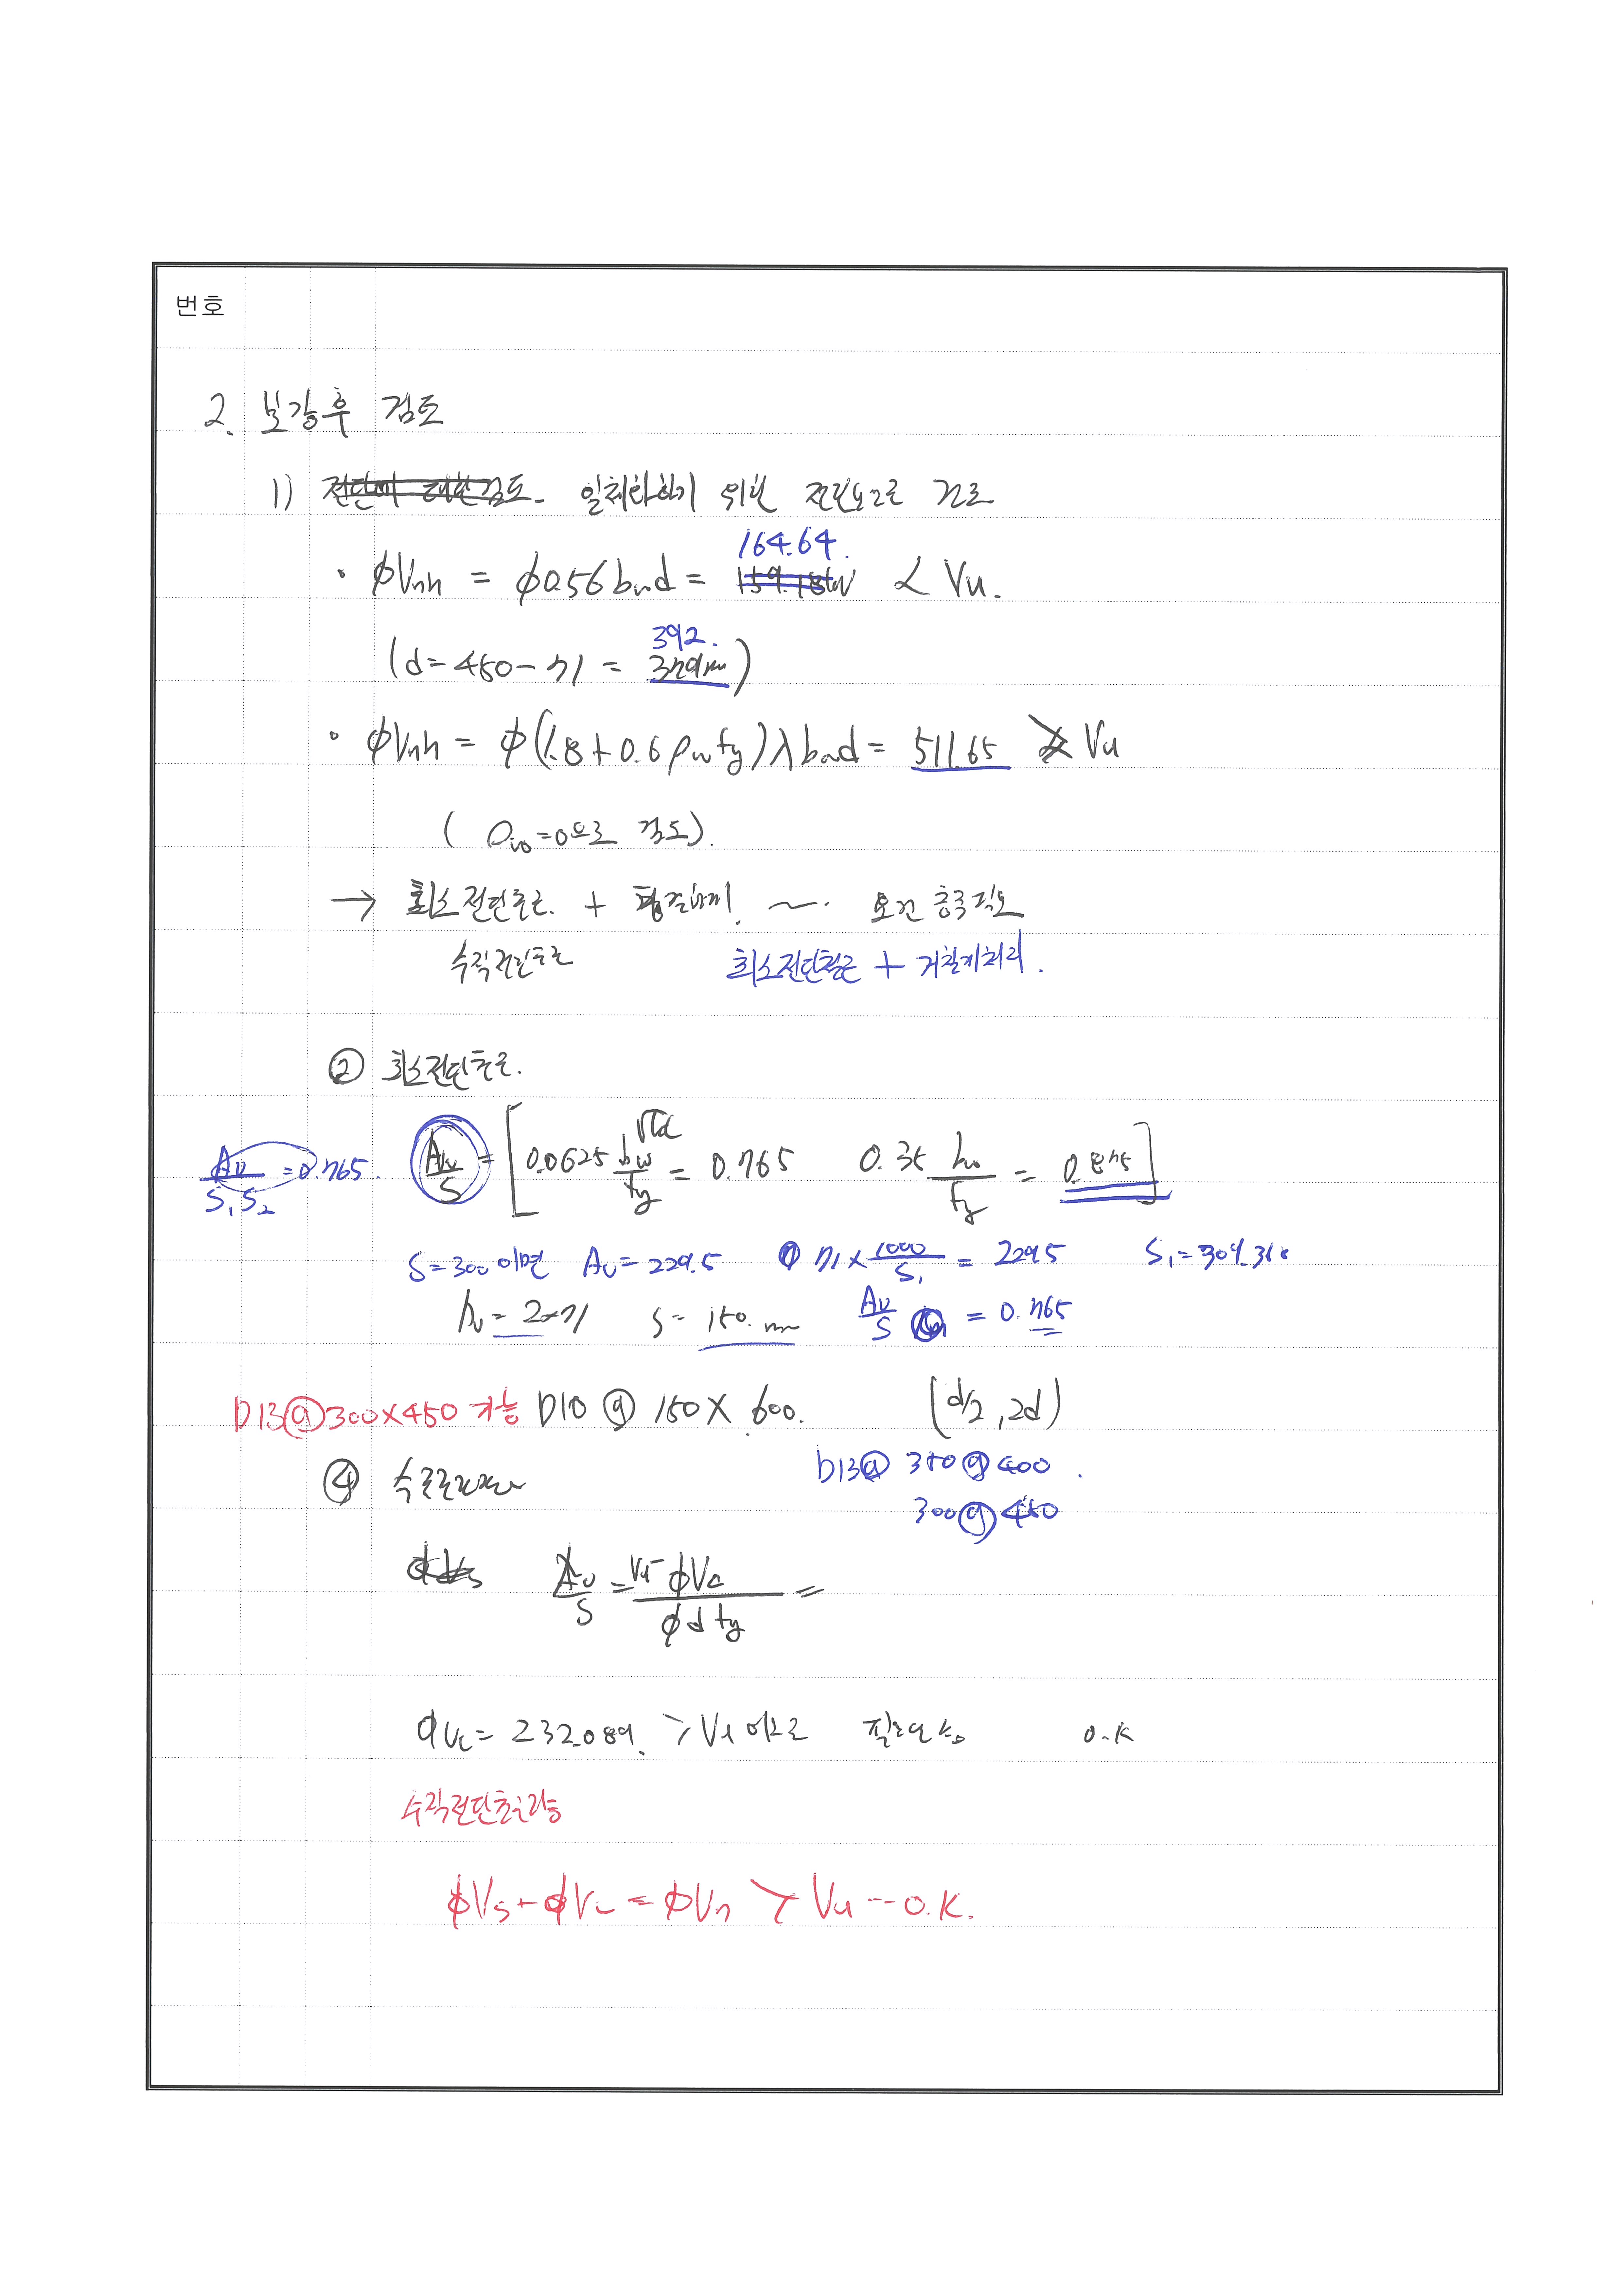 번호
2. 보강후 검토
1) 전단에 대한 검토. 일체화하기 위한 전단으로 검토
164.64.
· φVnh = φ0.56bwd = < Vu.
392.
(d = 450 - 71 = 379mm)
· φVnh = φ(1.8 + 0.6ρwfy)λbwd = 511.65 > Vu
(ρw = 0으로 검토).
→ 최소전단철근 + ~ 조건 충족 필요
수직전단철근 최소전단철근 + 거칠게처리.
② 최소전단철근.
Av/S1S2 = 0.765. Av/S = [0.0625 bw√fck/fy = 0.765 0.35 bw/fy = 0.875]
S = 300이면 Av = 229.5 71 × 1000/S1 = 229.5 S1 = 309.368
Av = 2×71 S = 150.mm Av/S = 0.765
D13@300×450 가능 D10 @ 150 × 600. (d/2, 2d)
④ D13@ 350@400.
300@450
Av/S = Vu - φVc / φdfy =
φVc = 232.089. > Vu 이므로 필요없음 O.K
수직전단철근가능
φVs + φVc = φVn > Vu --- O.K.